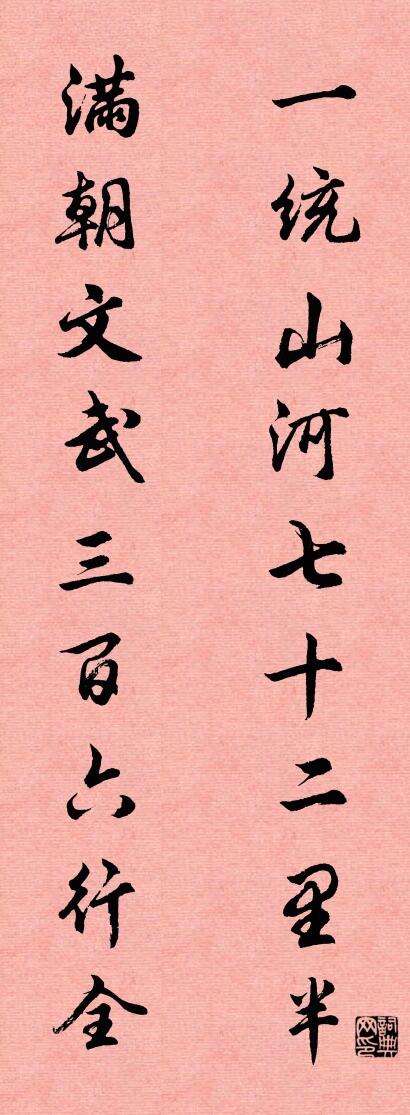 一统山河七十二里半
满朝文武三百六行全
詞典网印